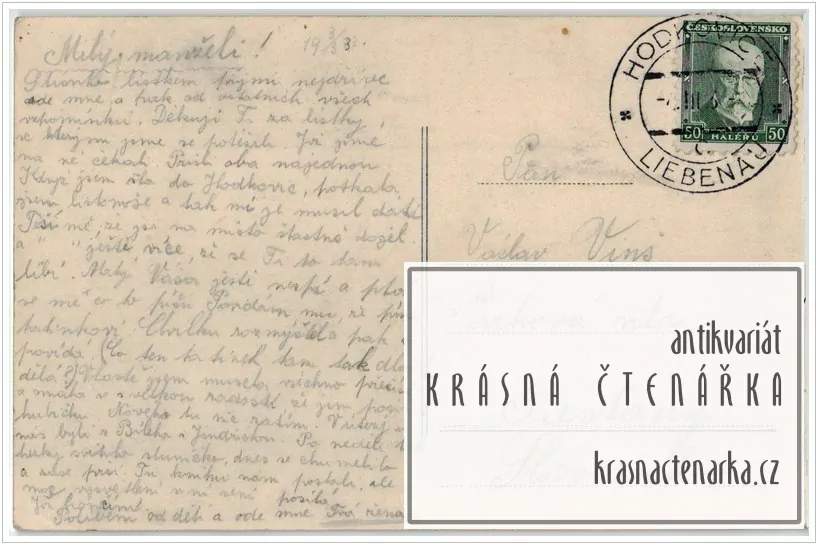 Milý manželi!
19 3/3 3
lístkem přijmi nejdříve
ode mne a pak od ostatních všech
vzpomínku. Děkuji Ti za lístky,
se kterými jsme se potěšili. Již jsme
na ně čekali. Přišli oba najednou.
Když jsem šla do Hodkovic, potkala
jsem listonoše a tak mi je musil dáti.
Těší mě, že jsi na místo šťastně dojel
a " " ještě více, že se Ti to tam
líbí. Malý Vaša ještě nespí a
se mě co to píšu Povídám mu, že
tatínkovi. Chvilku rozmýšlí a pak
povídá. (Co ten tatínek tam tak
dělá?) jsem musela všechno
a v velkou radostí, že jim
hubičku. Nového tu nic zatím. V úterý
nás byli z Bílého i Jindřichem. Po neděli
hezky svítilo sluníčko, dnes se chumelilo
a zase prší. Tu knihu nám poslali, ale
moc vysvětlení v ní není posílá
Již končím
Políbení od dětí a ode mne Tvá žena
Pan
Václav
HODKOVICE
LIEBENAU
ČESKOSLOVENSKO
50 HALÉŘŮ 50
antikvariát
KRÁSNÁ ČTENÁŘKA
krasnactenarka.cz